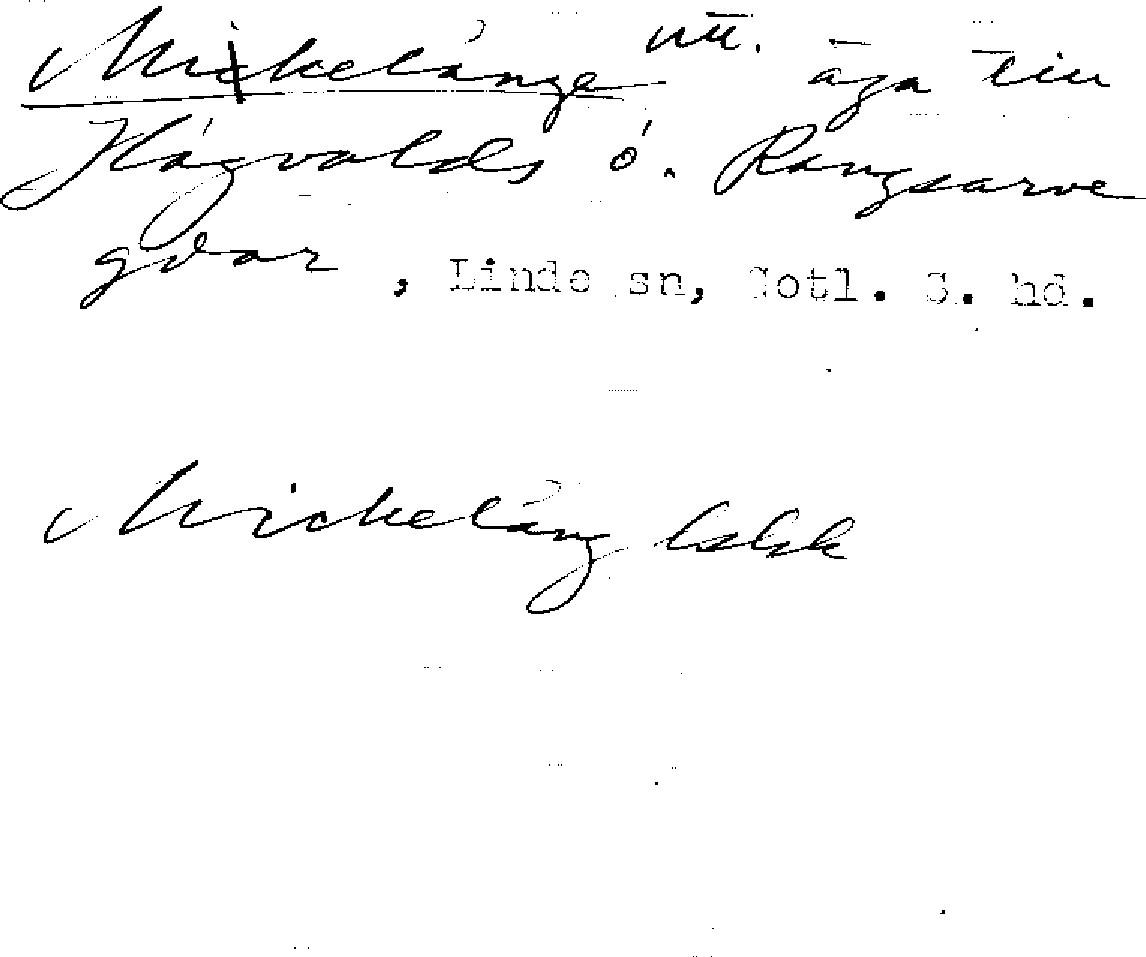 Mickelånge utt. äga till
Hägvalds o. Rangsarve
gdar, Linde sn, Gotl. S. hd.
Mickelång